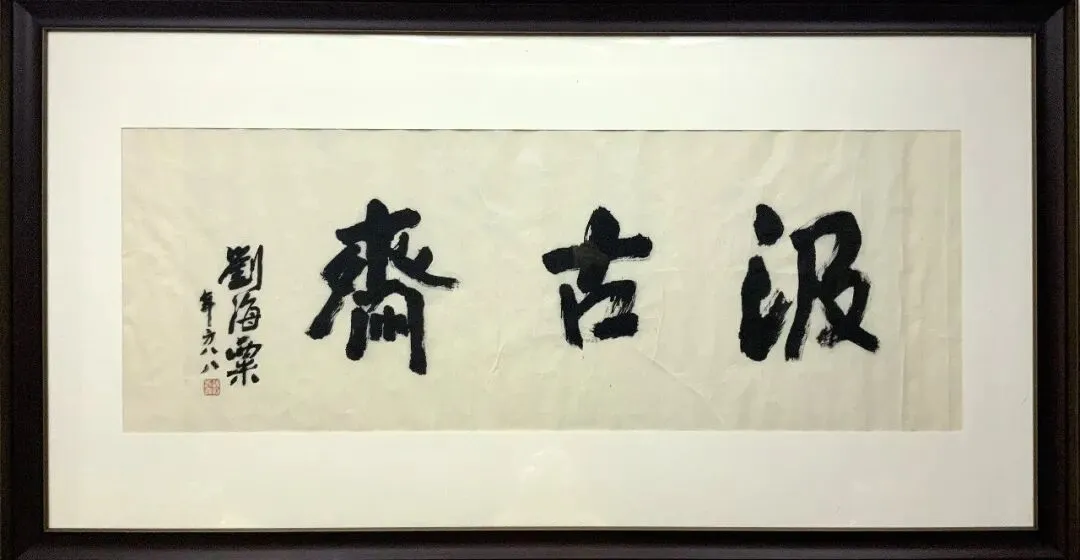 汲古齋
劉海粟
年方八八